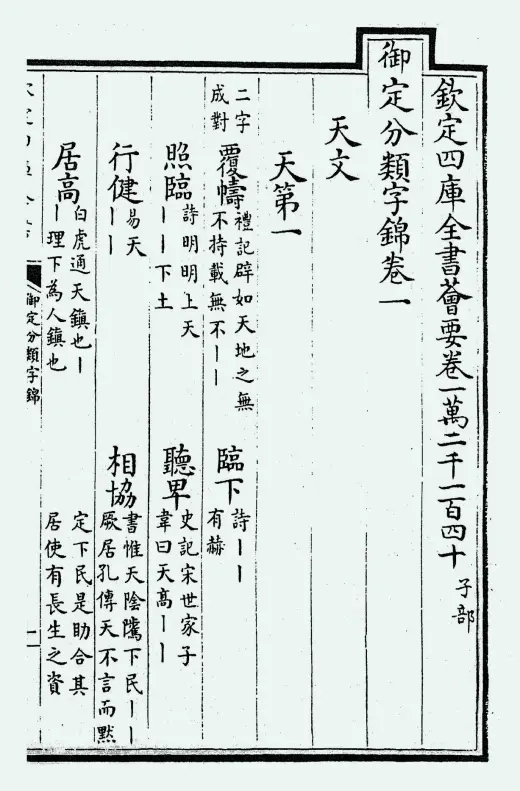 欽定四庫全書薈要卷一萬二千一百四十 子部
御定分類字錦卷一
天文
天第一
二字
成對
覆幬
禮記辟如天地之無
不持載無不丨丨
臨下
詩丨丨
有赫
照臨
詩明明上天
丨丨下土
聽卑
史記宋世家子
韋曰天高丨丨
行健
易天
丨丨
相協
書惟天陰隲下民丨丨
厥居孔傳天不言而黙
定下民是助合其
居使有長生之資
居高
白虎通天鎮也丨
丨理下為人鎮也
御定分類字錦